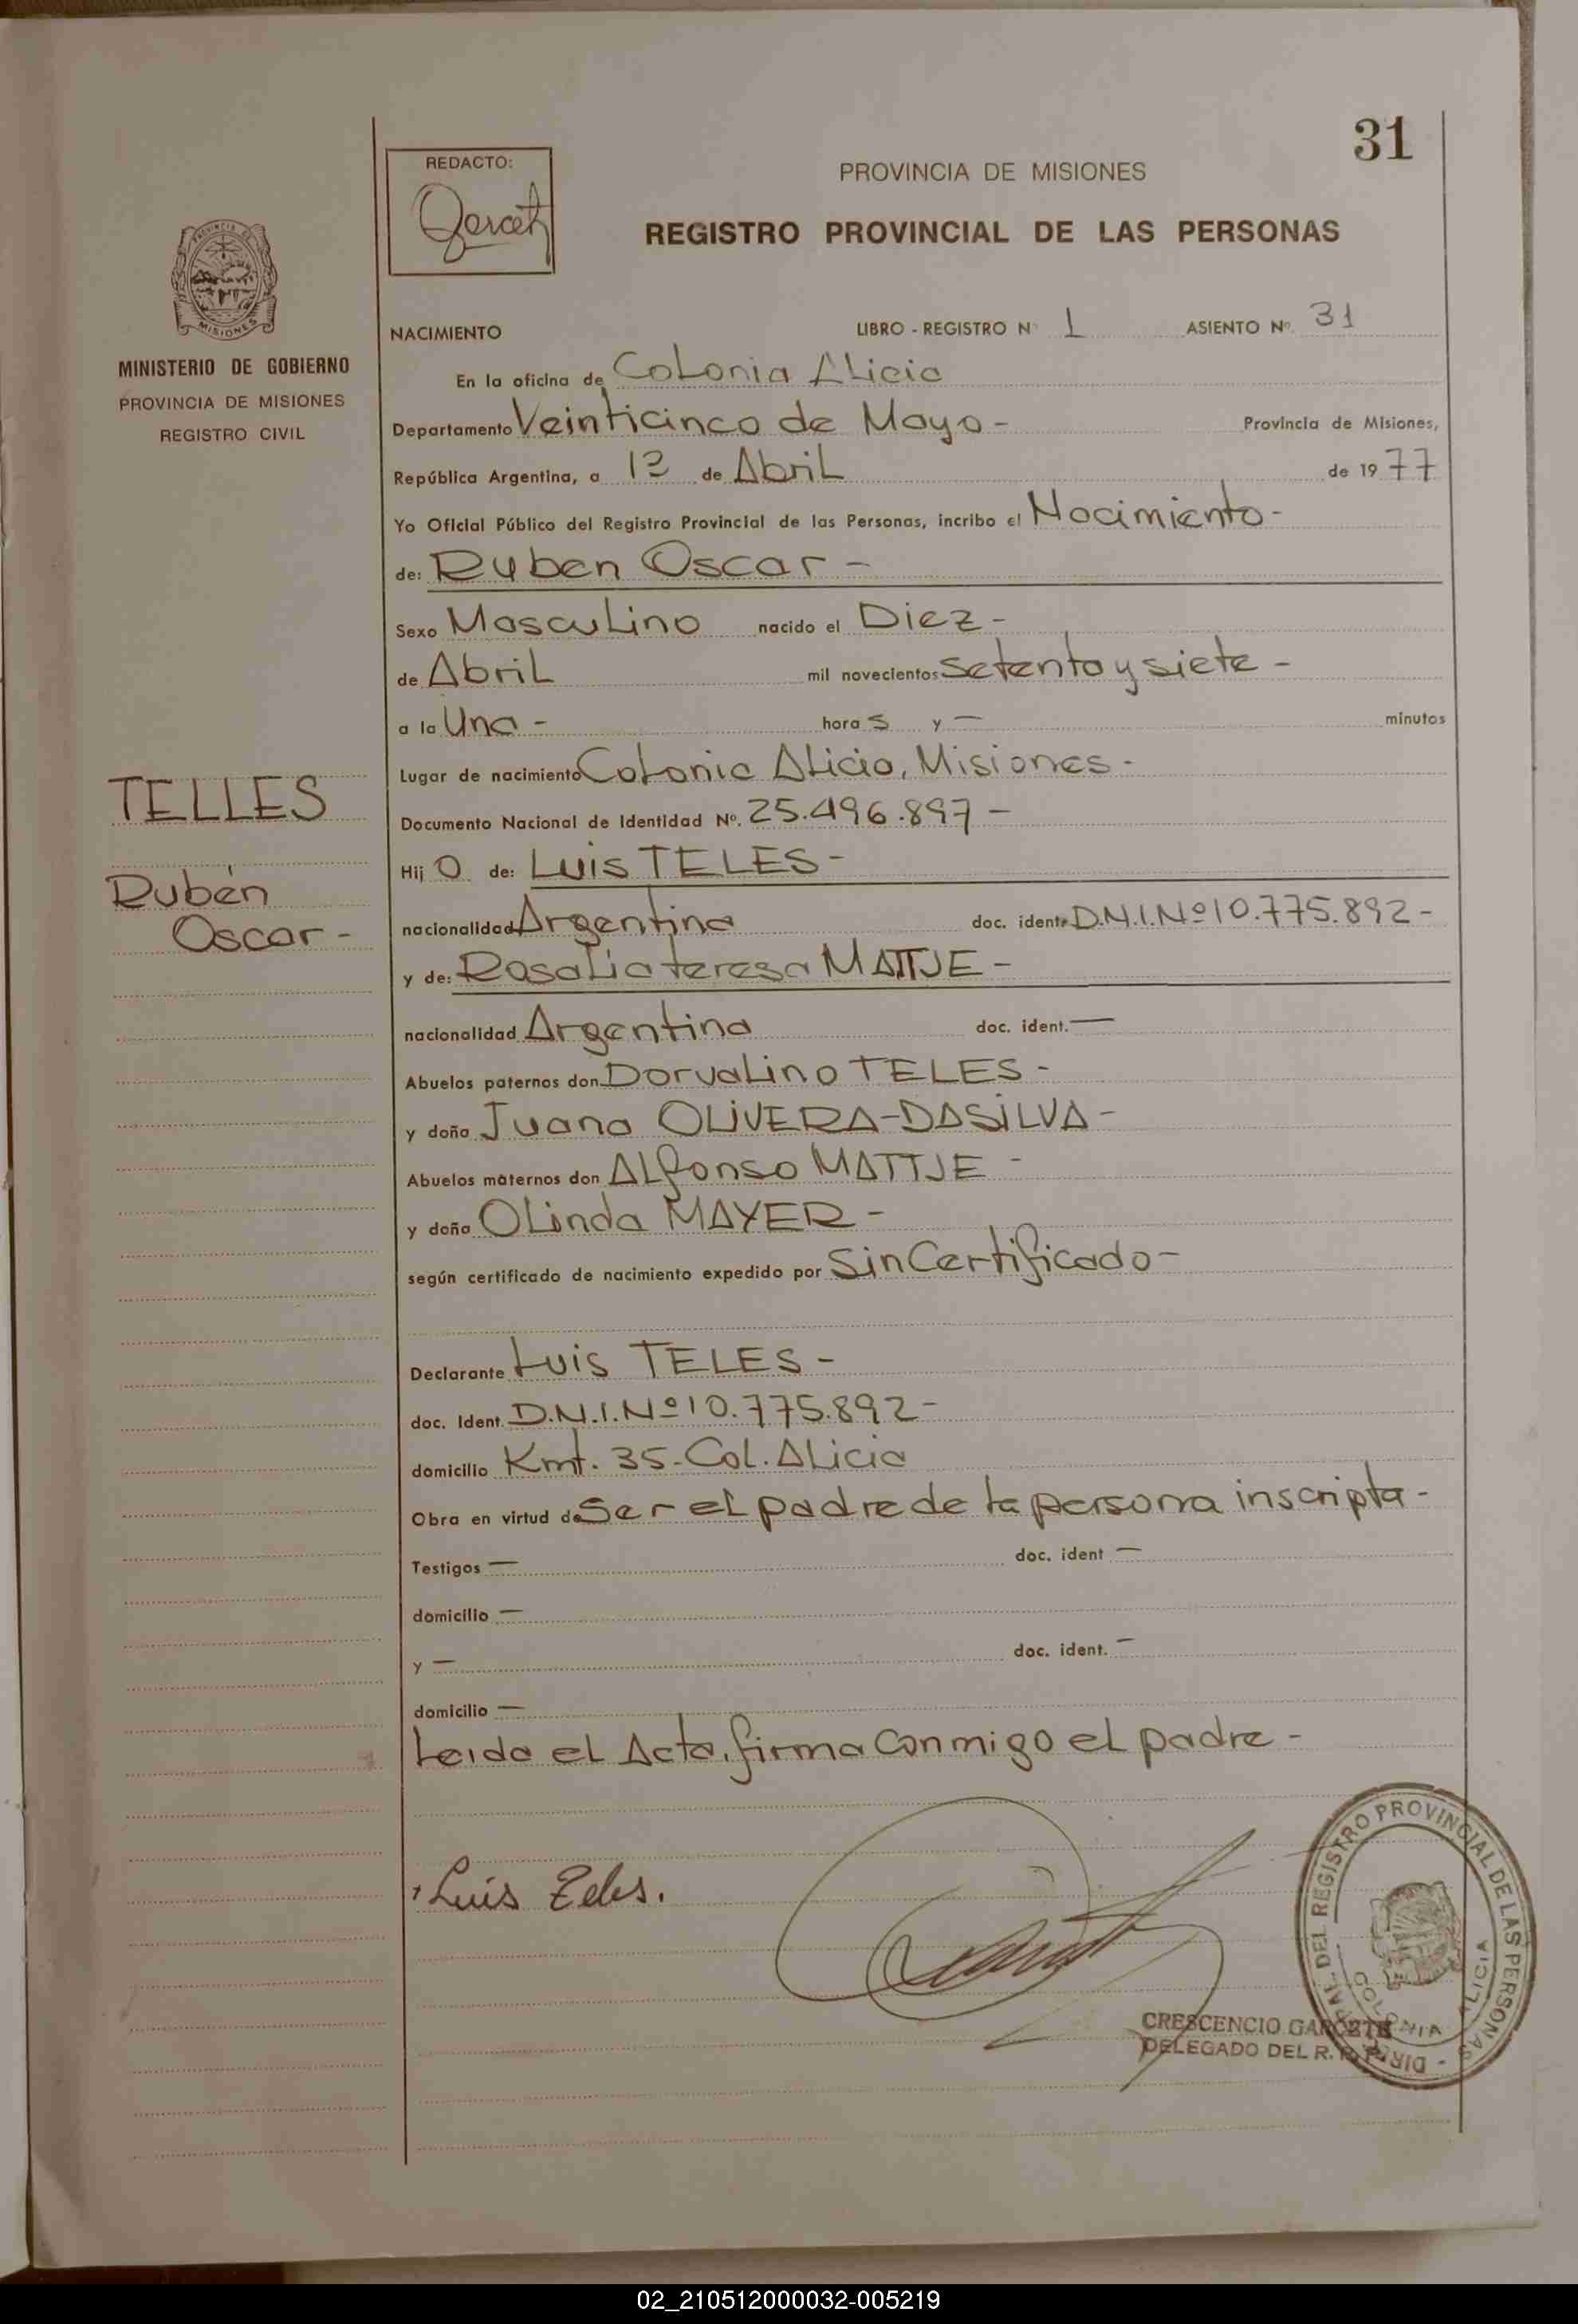 31
REDACTO:
PROVINCIA DE MISIONES
REGISTRO PROVINCIAL DE LAS PERSONAS
MISIONES
MINISTERIO DE GOBIERNO
PROVINCIA DE MISIONES
REGISTRO CIVIL
TELLES
Rubén
Oscar -
NACIMIENTO LIBRO - REGISTRO Nº 1 ASIENTO Nº. 31
En la oficina de Colonia Alicia
Departamento Veinticinco de Mayo - Provincia de Misiones,
República Argentina, a 12 de Abril de 1977
Yo Oficial Público del Registro Provincial de las Personas, incribo el Nacimiento -
de: Ruben Oscar -
Sexo Masculino nacido el Diez -
de Abril mil novecientos setenta y siete -
a la Una - hora s y — minutos
Lugar de nacimiento Colonia Alicia, Misiones -
Documento Nacional de Identidad Nº. 25.496.897 -
Hij o de: Luis TELES -
nacionalidad Argentina doc. ident. D.N.I.Nº 10.775.892 -
y de: Rosalia teresa MATTJE -
nacionalidad Argentina doc. ident. —
Abuelos paternos don Dorvalino TELES -
y doña Juana OLIVERA-DASILVA -
Abuelos maternos don Alfonso MATTJE -
y doña Olinda MAYER -
según certificado de nacimiento expedido por Sin Certificado -
Declarante Luis TELES -
doc. Ident. D.N.I.Nº 10.775.892 -
domicilio Kmt. 35 - Col. Alicia
Obra en virtud de Ser el padre de la persona inscripta -
Testigos — doc. ident —
domicilio —
y — doc. ident. —
domicilio —
Leida el Acta, firma conmigo el padre -
Luis Teles.
CRESCENCIO
DELEGADO DEL R.
DEL REGISTRO PROVINCIAL DE LAS PERSONAS
COLONIA ALICIA
02_210512000032-005219